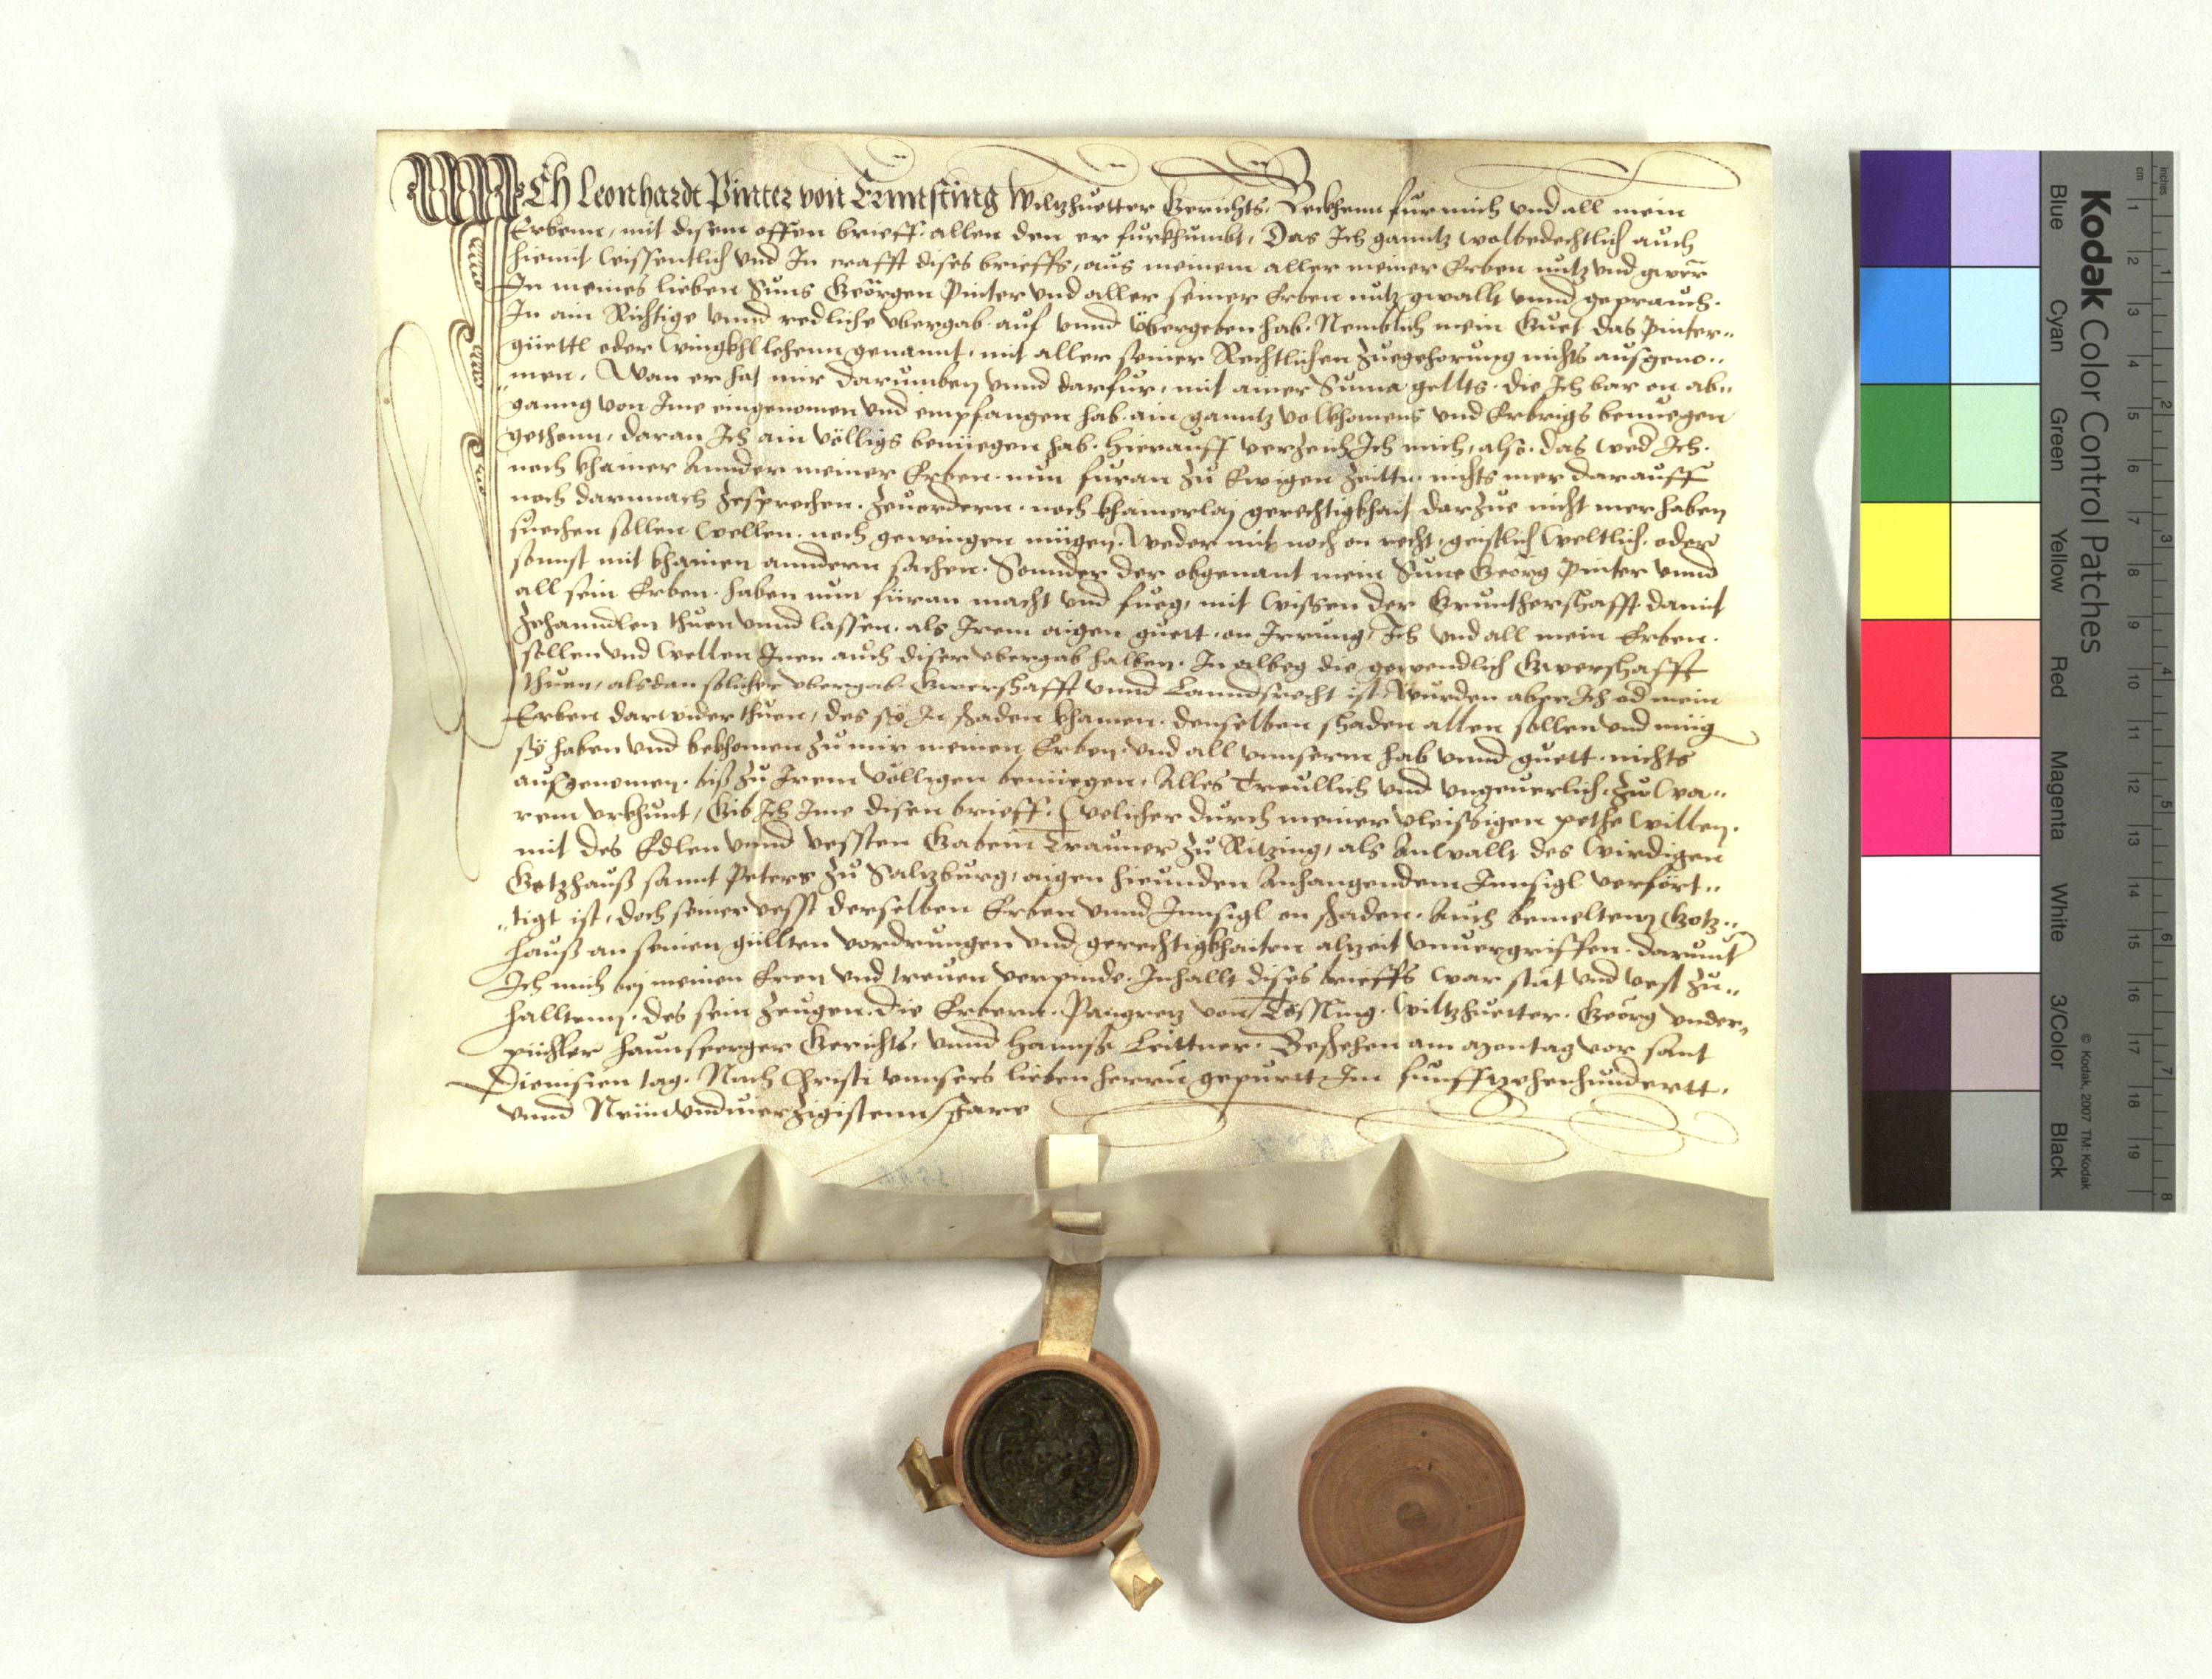 ICh Leonhardt Pinter von Ermsting Wiltzhuetter Gerichts. Bekhenn fur mich vnd all mein
Erbenn, mit disem offen brieff. allen den er furkhumbt, Das Ich ganntz wolbedechtlich auch
hiemit wissentlich vnd In crafft dises brieffs, aus meinem aller meiner Erben nutz vnd gwer
In meines lieben Suns Geörgen Pinter vnd aller seiner Erben nutz gwallt vnnd geprauch.
In ain Richtige vnnd redliche vbergab auf vnnd übergeben hab. Nemblich mein Guet das Pinter„
güettl oder Wingkhllehenn genannt, mit aller seiner Rechtlichen zuegehorung nichts ausgeno„
„men. Wan er hat mir darumben vnnd darfur, mit ainer Suma gellts. die Ich bar on ab„
ganng von Ime eingenomen vnd empfangen hab. ain ganntz volkhomens vnd Erbrigs benuegen
gethenn, daran Ich ain völligs benüegen hab. Hierauff verzeich Ich mich, also. das wed Ich.
noch khainer Annder meiner Erben. nun furan zu Ewigen Zeittn. nichts mer darauff
noch darnnach zesprechen. zeuordern. noch khainerlaj gerechtigkhait darzue nicht mer haben
suechen sollen wellen. noch gewingen mügen. Weder mit noch on recht, geistlich weltlich. oder
sonnst mit khainen anndern sachen. Sonnder der obgenant mein Sune Georg Pinter vnnd
all sein Erben. haben nun füran macht vnd fueg, mit wissen der Grunthershafft. damit
zehanndlen thuen vnnd lassen. als Irem aigen guett. on Irrung, Ich vnd all mein Erben.
sollen vnd wellen Inen auch diser vbergab halben. In albeg die gewendlich Gwershafft
thuen, alsdan solicher vbergab. Gwershafft vnnd Lanndsrecht ist. Wurden aber Ich od mein
Erben darwider thuen, des sÿ In shaden khamen. denselben shaden allen sollen vnd müg
sÿ haben vnd bekhomen zu mir meinen Erben. vnd all vnnserm hab vnnd guett. nichts
ausgenomen. biß zu Irem völligen benüegen. Alles Treullich vnd vngeuerlich. Zu wa„
rem vrkhunt, Gib Ich Ime disen brieff. welicher durch meiner vleissigen pethe willen.
mit des Edlen vnnd vessten Trauner zu Ritzing, als Anwallt des wirdigen
Gotzhauß sannt Peters zu Saltzburg, aigen hieunden Anhangendem Innsigl verfört„
„tigt ist, doch seiner vesst derselben Erben vnnd Innsigl on shaden. Auch bemeltem Gotz„
hauß an seinen güllten vordrungen vnd gerechtigkhaiten alzeit vnuergriffen. darunt
Ich mich bej meinen Eren vnd treuen verpinde. Inhallt dises brieffs war stät vnd vest zu„
halltenn. des sein zeugen. die Erbern. Pangretz von Tössling. Wiltzhuetter. Geörg vnder„
püchler haunsperger Gerichts, vnnd Hannss Leittner. Beshehen am Montag vor sant
Dionisien tag. Nach Christi vnnsers lieben herrn gepurtt. Im funfftzehenhundertt.
vnnd Neünvnduierzigistenn Jare
Kodak Color Control Patches
Blue Cyan Green Yellow Red Magenta White 3/Color Black
© Kodak, 2007 TM: Kodak
inches 1 2 3 4 5 6 7 8
cm 1 2 3 4 5 6 7 8 9 10 11 12 13 14 15 16 17 18 19